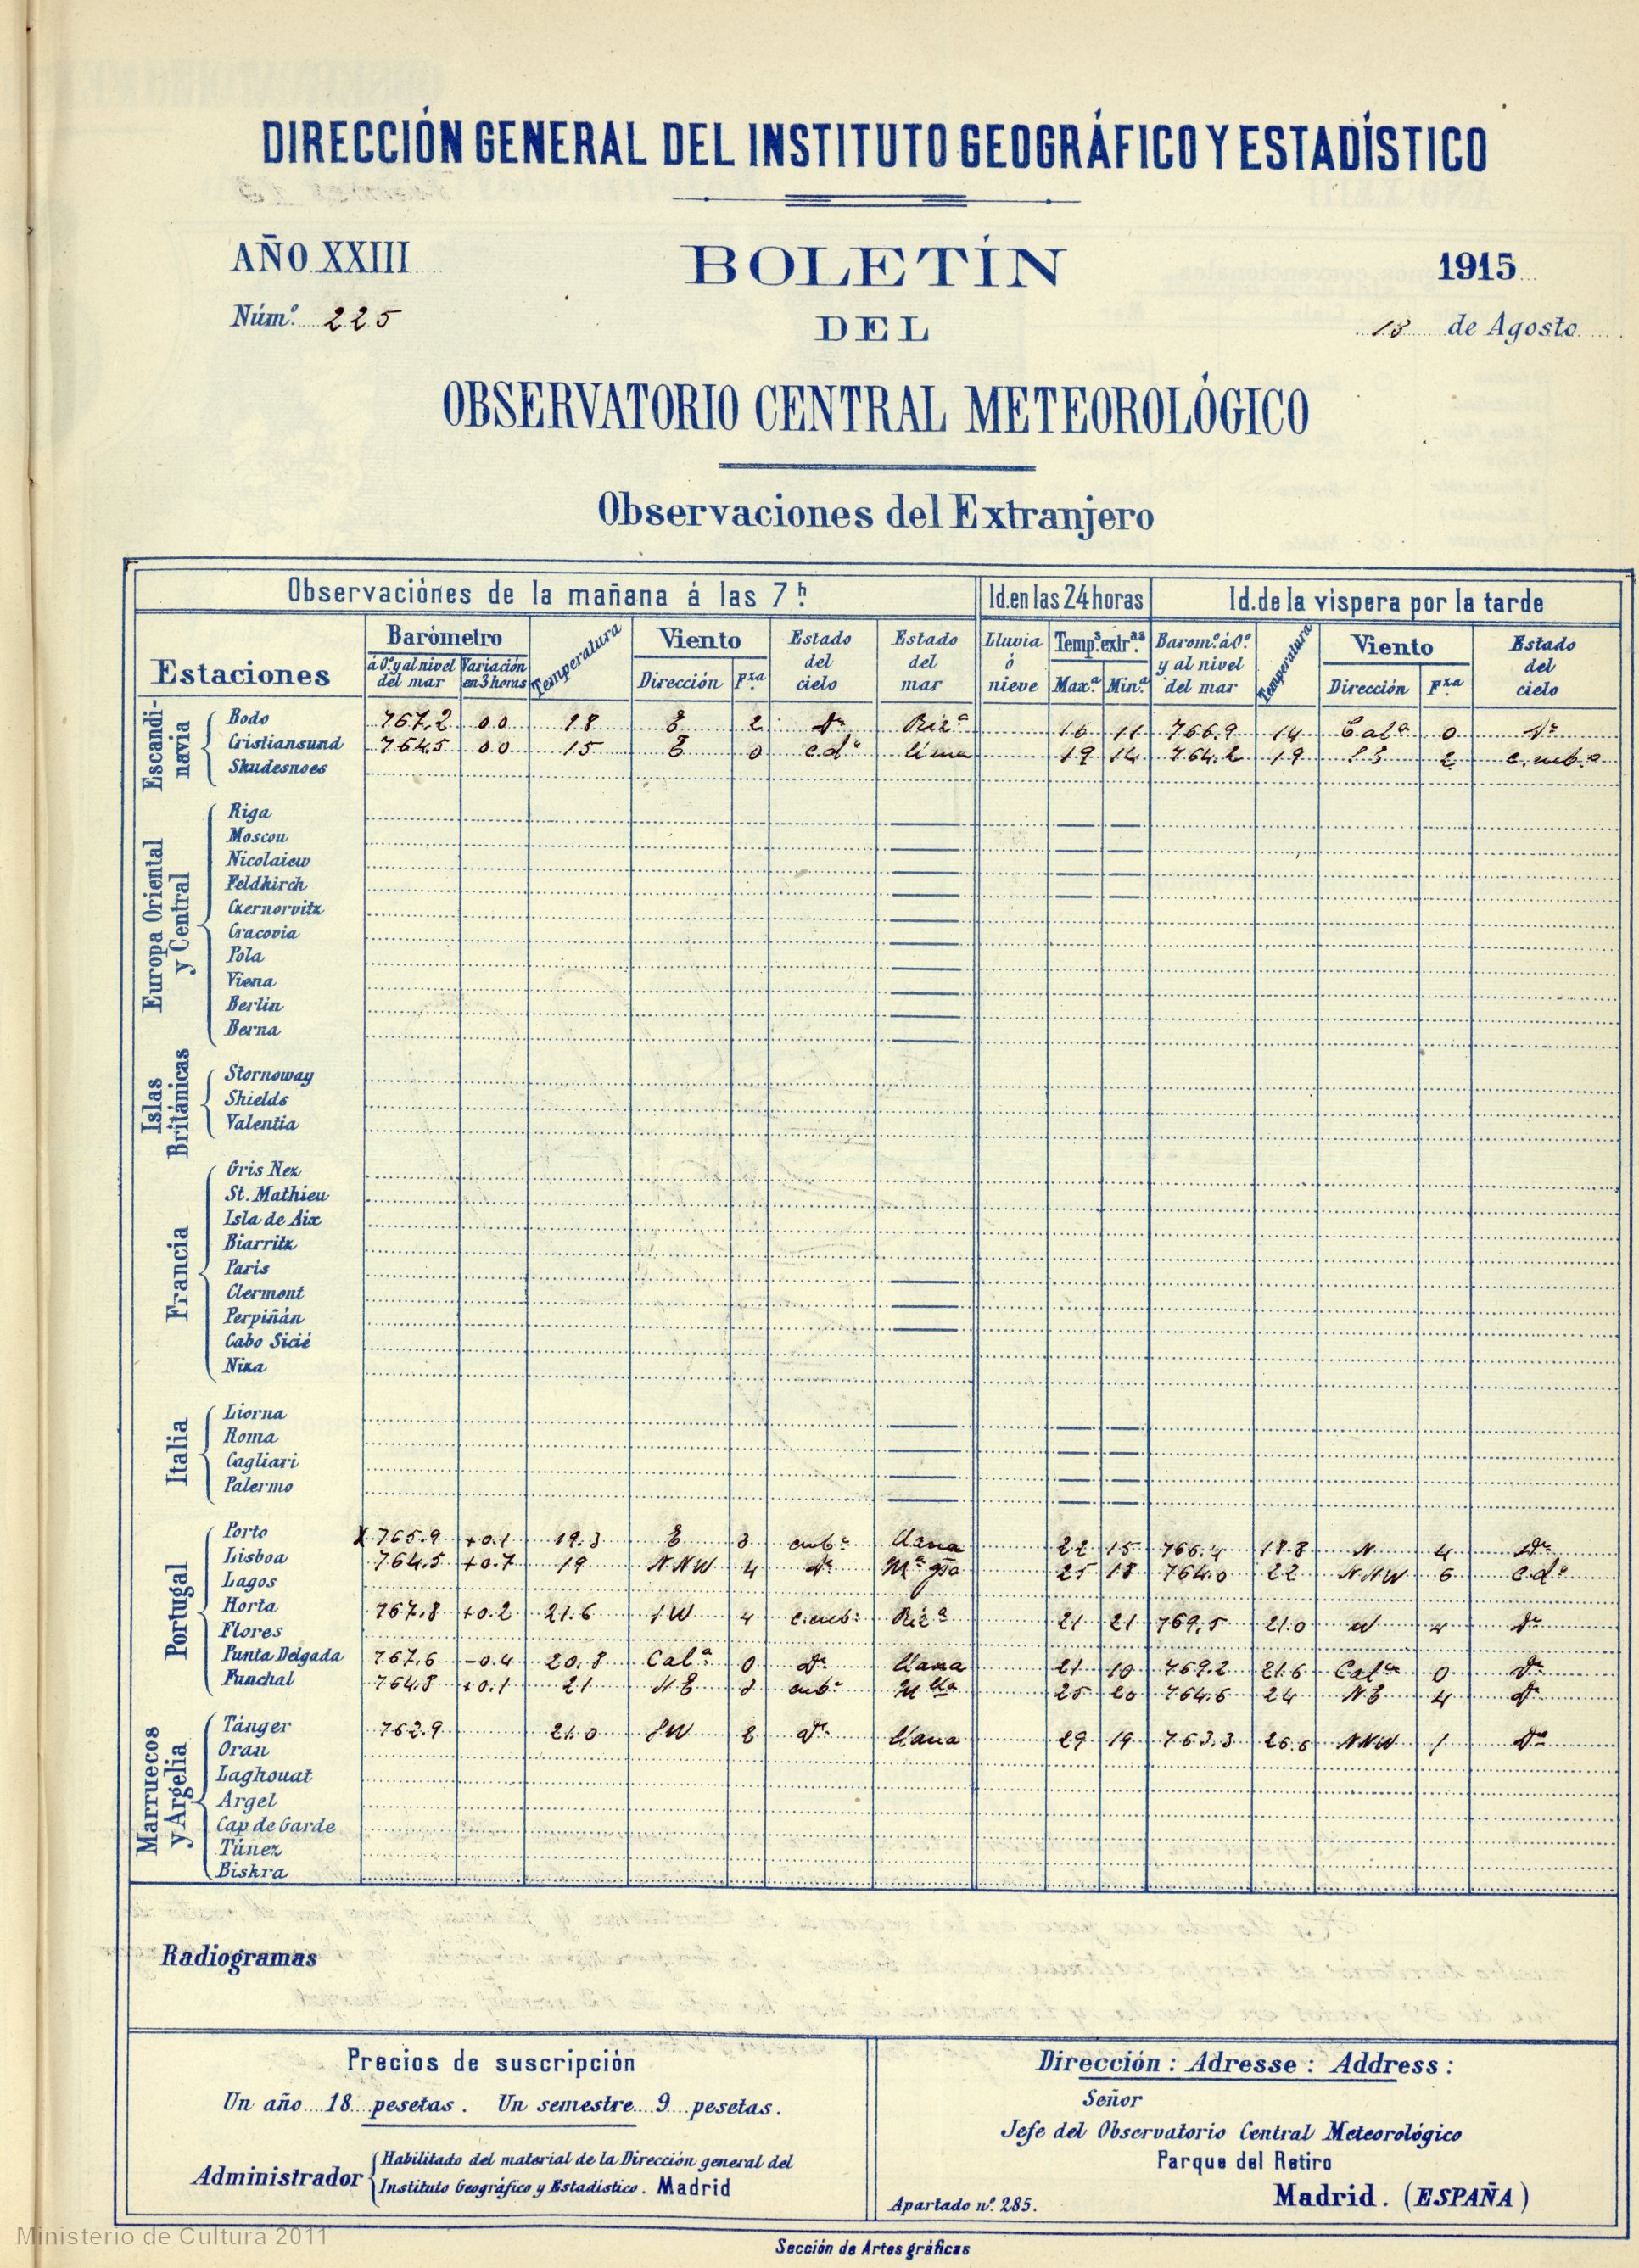 DIRECCIÓN GENERAL DEL INSTITUTO GEOGRÁFICO Y ESTADÍSTICO
AÑO XXIII BOLETÍN 1915
Núm.º 225 DEL 13 de Agosto
OBSERVATORIO CENTRAL METEOROLÓGICO
Observaciones del Extranjero
Observaciónes de la mañana á las 7 h. Id. en las 24 horas Id. de la vispera por la tarde
Estaciones Barómetro á 0.º y al nivel del mar Variación en 3 horas Temperatura Viento Dirección F.xa Estado del cielo Estado del mar Lluvia ó nieve Temp.s extr.as Max.ª Min.ª Barom.º á 0.º y al nivel del mar Temperatura Viento Dirección F.xa Estado del cielo
Escandinavia
Bodo 767.2 0.0 18 E 2 d.º Riz.ª 16 11 766.9 14 Cal.ª 0 d.º
Cristiansund 764.5 0.0 15 E 0 c.d.º llana 19 14 764.2 19 2 c. nub.º
Skudesnoes
Europa Oriental y Central
Riga
Moscou
Nicolaiew
Feldkirch
Czernorvitz
Cracovia
Pola
Viena
Berlin
Berna
Islas Británicas
Stornoway
Shields
Valentia
Francia
Gris Nez
St. Mathieu
Isla de Aix
Biarritz
Paris
Clermont
Perpiñán
Cabo Sicié
Niza
Italia
Liorna
Roma
Cagliari
Palermo
Portugal
Porto X 765.9 +0.1 19.3 E 3 cub.º llana 22 15 766.4 18.8 N 4 d.º
Lisboa 764.5 +0.7 19 NNW 4 d.º M.ª gra 25 18 764.0 22 NNW 6 c.d.º
Lagos
Horta 767.8 +0.2 21.6 SW 4 c.cub.º Riz.ª 21 21 769.5 21.0 W 4 d.º
Flores
Punta Delgada 767.6 -0.4 20.8 Cal.ª 0 d.º llana 21 10 769.2 21.6 Cal.ª 0 d.º
Funchal 764.8 +0.1 21 NE 3 cub.º M.lla 25 20 764.6 24 NE 4 d.º
Marruecos y Argelia
Tánger 762.9 21.0 SW 2 d.º llana 29 19 763.3 26.6 NNW 1 d.º
Oran
Laghouat
Argel
Cap de Garde
Túnez
Biskra
Radiogramas
Precios de suscripción
Un año 18 pesetas. Un semestre 9 pesetas.
Administrador Habilitado del material de la Dirección general del
Instituto Geográfico y Estadistico. Madrid
Dirección : Adresse : Address :
Señor
Jefe del Observatorio Central Meteorológico
Parque del Retiro
Apartado nº. 285. Madrid. (ESPAÑA)
Ministerio de Cultura 2011
Sección de Artes gráficas